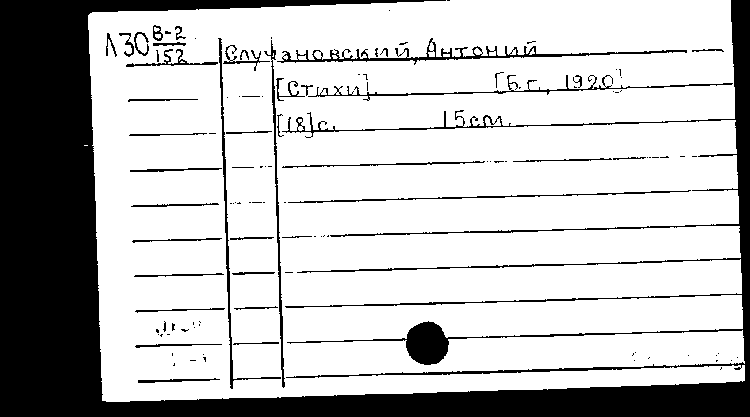 Л30 В-2/152
Случановский, Антоний
[Стихи]. [Б.г., 1920].
[18]с. 15см.